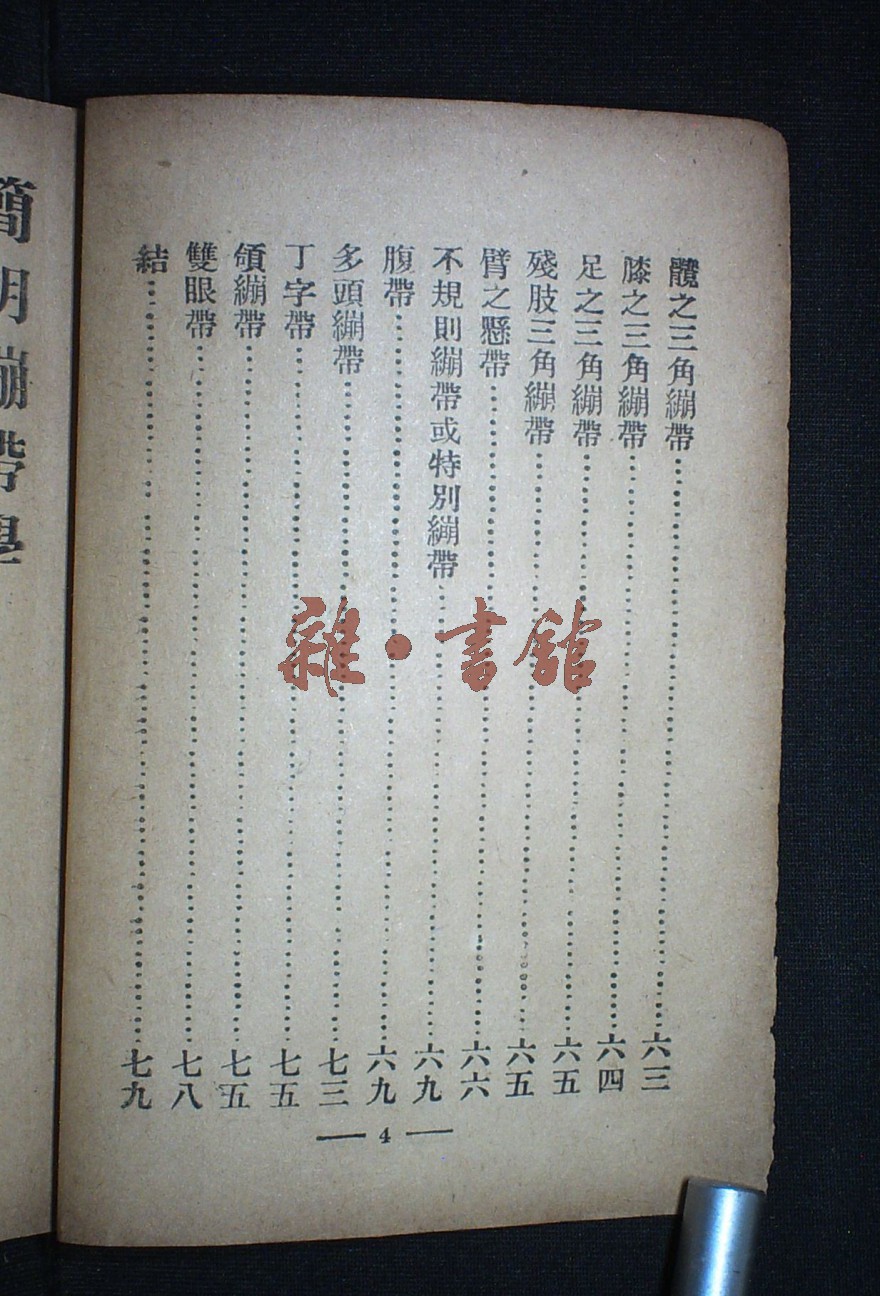 髖之三角繃帶…六三
膝之三角繃帶…六四
足之三角繃帶…六五
殘肢三角繃帶…六五
臂之懸帶…六六
不規則繃帶或特別繃帶…六九
腹帶…六九
多頭繃帶…七三
丁字帶…七五
頷繃帶…七五
雙眼帶…七八
結…七九
— 4 —
簡明繃帶學
雜·書館